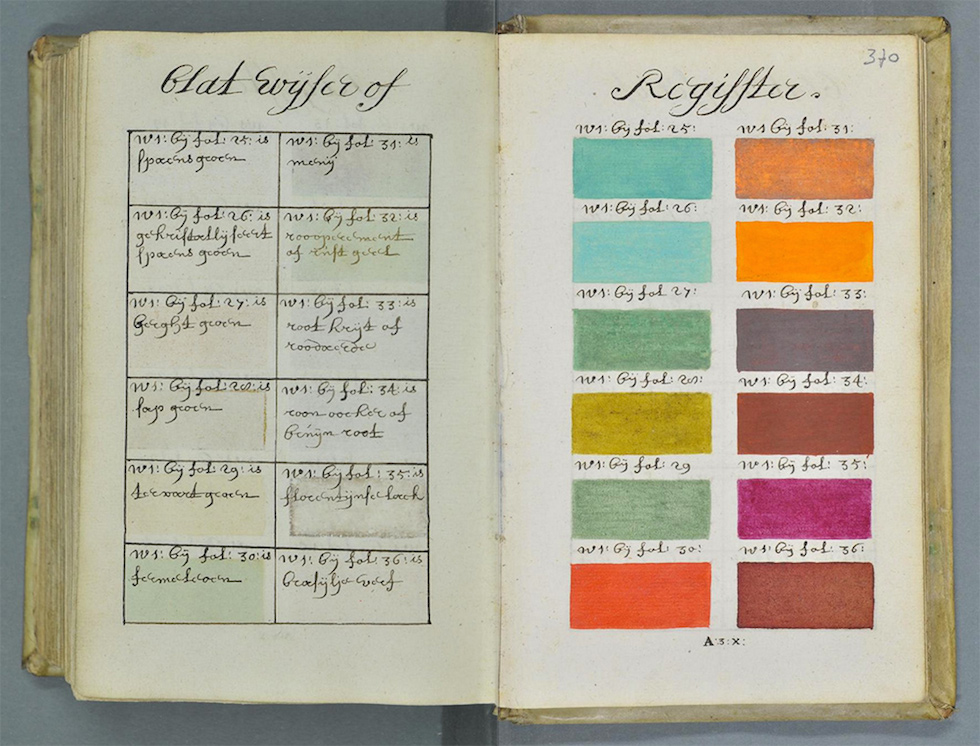 Blat Wÿser of
N1: bÿ fol: 25: is
spaens groen
N1: bÿ fol: 31: is
menij
N1: bÿ fol: 26: is
gekristallÿseert
spaens groen
N1: bÿ fol: 32: is
of rust geel
N1: bÿ fol: 27: is
berght groen
N1: bÿ fol: 33: is
root krijt of
roodaerde
N1: bÿ fol: 28: is
sap groen
N1: bÿ fol: 34: is
roon oocker of
bruÿn root
N1: bÿ fol: 29: is
terwart groen
N1: bÿ fol: 35: is
florentÿnse lack
N1: bÿ fol: 30: is
fermeloen
N1: bÿ fol: 36: is
brasÿlje verf
Regisster.
370
N1: bÿ fol: 25:
N1 bÿ fol: 31:
N1: bÿ fol: 26:
N1: bÿ fol: 32:
N1: bÿ fol: 27:
N1: bÿ fol: 33:
N1: bÿ fol: 28:
N1: bÿ fol: 34:
N1: bÿ fol: 29
N1: bÿ fol: 35:
N1: bÿ fol: 30:
N1: bÿ fol: 36:
A:3:X: